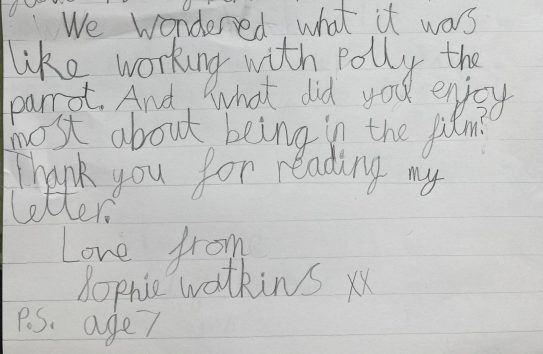 We wondered what it was
like working with Polly the
parrot. And what did you enjoy
most about being in the film?
Thank you for reading my
letter.
Love from
Sophie Watkins xx
P.S. age 7